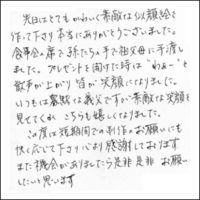 先日はとてもかわいく素敵な似顔絵を
作って下さり本当にありがとうございました。
食事会の席で孫たちの手で祖父母に手渡し
ました。プレゼントを開けた時は"わぁー"と
歓声が上がり皆が笑顔になりました。
いつもは寡黙な義父ですが素敵な笑顔を
見せてくれ こちらも嬉しくなりました。
この度は短期間での制作のお願いにも
快く応じて下さり心より感謝しております
また機会がありましたら是非是非お願い
したいと思います